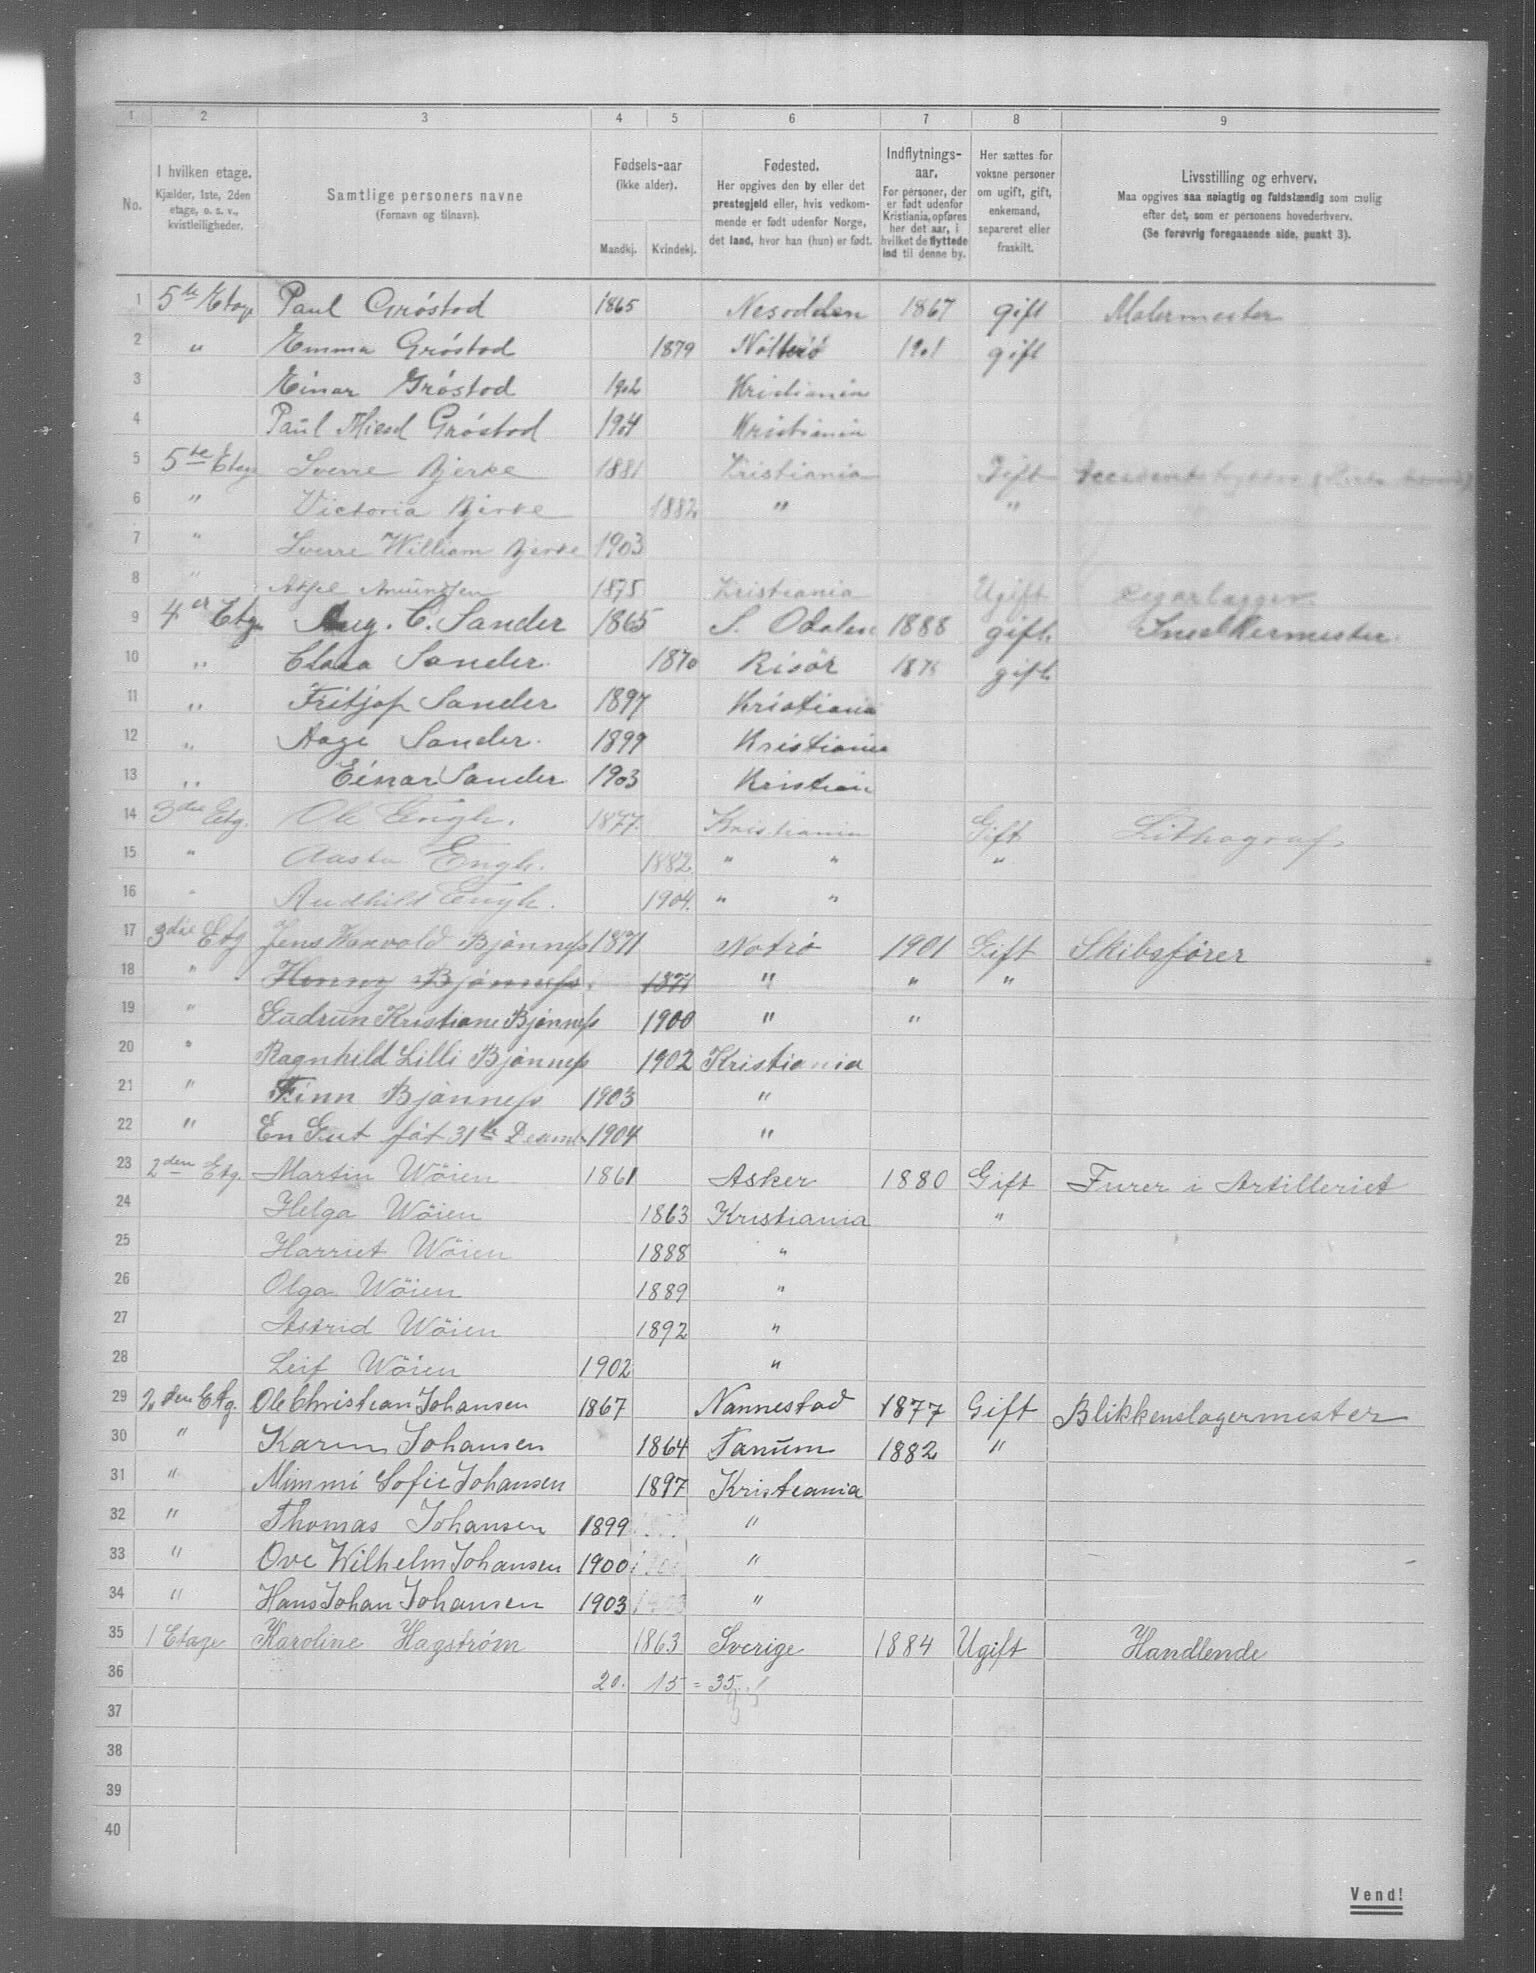 1 2 3 4 5 6 7 8 9
No. I hvilken etage. Kjælder, 1ste, 2den etage, o. s. v., kvistleiligheder. Samtlige personers navne (Fornavn og tilnavn). Fødsels-aar (ikke alder). Mandkj. Kvindekj. Fødested. Her opgives den by eller det prestegjeld eller, hvis vedkommende er født udenfor Norge, det land, hvor han (hun) er født. Indflytnings-aar. For personer, der er født udenfor Kristiania, opføres her det aar, i hvilket de flyttede ind til denne by. Her sættes for voksne personer om ugift, gift, enkemand, separeret eller fraskilt. Livsstilling og erhverv. Maa opgives saa nøiagtig og fuldstændig som mulig efter det, som er personens hovederhverv. (Se forøvrig foregaaende side, punkt 3).
1 5te Etage Paul Gróstod 1865 Nesodden 1867 gift Malermester
2 " Emma Gróstod 1879 Nøtterö 1901 gift
3 Einar Gróstod 1902 Kristiania
4 Paul Gróstod 1904 Kristiania
5 5te Etage Sverre Bjerke 1881 Kristiania Gift
6 " Victoria Bjerke 1882 " "
7 " Sverre William Bjerke 1903
8 " Aksel Amundsen 1875 Kristiania Ugift
9 4er Etg. Aug. C. Sander 1865 S. Odalen 1888 gift Snedkermester.
10 " Clara Sander. 1870 Risör gift
11 " Fritjof Sander 1897 Kristiania
12 " Aage Sander. 1899 Kristiania
13 " Einar Sander 1903 Kristian
14 3die Etg. Ole Engh. 1877. Kristiania Gift Lithograf.
15 " Aasta Engh. 1882. " " "
16 " Audhild Engh. 1904. " "
17 3die Etg Jens Bjónness 1871 Notró 1901 Gift Skibsfører
18 " Henny Bjónness. 1877 " " "
19 " Gudrun Kristiane Bjónness 1900 " "
20 " Ragnhild Lilli Bjónness 1902 Kristiania
21 " Finn Bjónness 1903 "
22 " En Gut fót 31te Desember 1904 "
23 2den Etg. Martin Wöien 1861 Asker 1880 Gift Furer i Artilleriet
24 Helga Wöien 1863 Kristiania "
25 Harriet Wöien 1888 "
26 Olga Wöien 1889 "
27 Astrid Wöien 1892 "
28 Leif Wöien 1902 "
29 2den Etg. Ole Christian Johansen 1867 Nannestad 1877 Gift Blikkenslagermester
30 " Karen Johansen 1864 Tanum 1882 "
31 " Mimmi Sofie Johansen 1897 Kristiania
32 " Thomas Johansen 1899 "
33 " Ove Wilhelm Johansen 1900 "
34 " Hans Johan Johansen 1903 "
35 1 Etage Karoline Hagström 1863 Sverige 1884 Ugift Handlende
36 20. 15 = 35.
37
38
39
40
Vend!